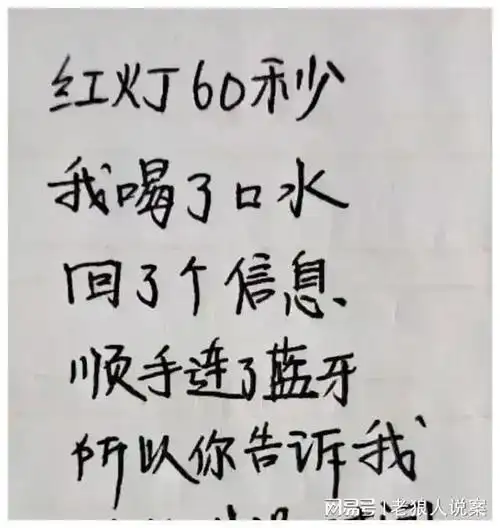 红灯60秒
我喝了口水
回了个信息、
顺手连了蓝牙
所以你告诉我
网易号 | 老狼人说案